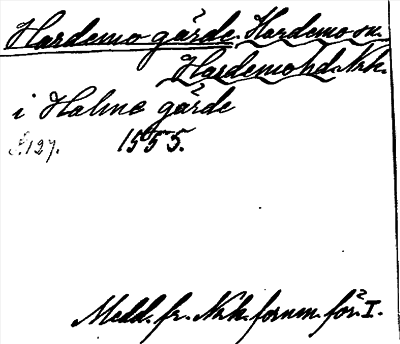 Hardemo gärde. Hardemo sn.
Hardemo hd. Nrk.
i Halmo gärde
S. 127. 1555.
Medd. fr. Nrk. fornm. för. I.